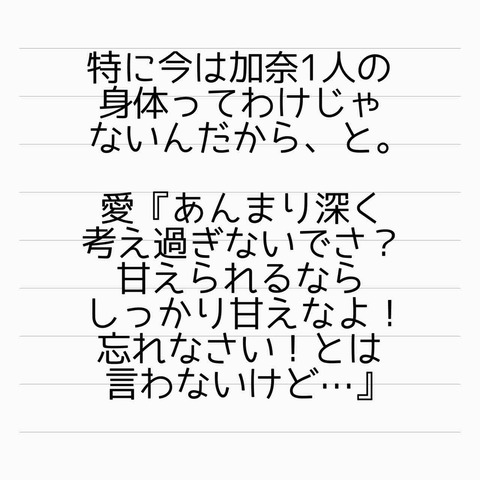 特に今は加奈1人の
身体ってわけじゃ
ないんだから、と。
愛『あんまり深く
考え過ぎないでさ？
甘えられるなら
しっかり甘えなよ！
忘れなさい！とは
言わないけど…』